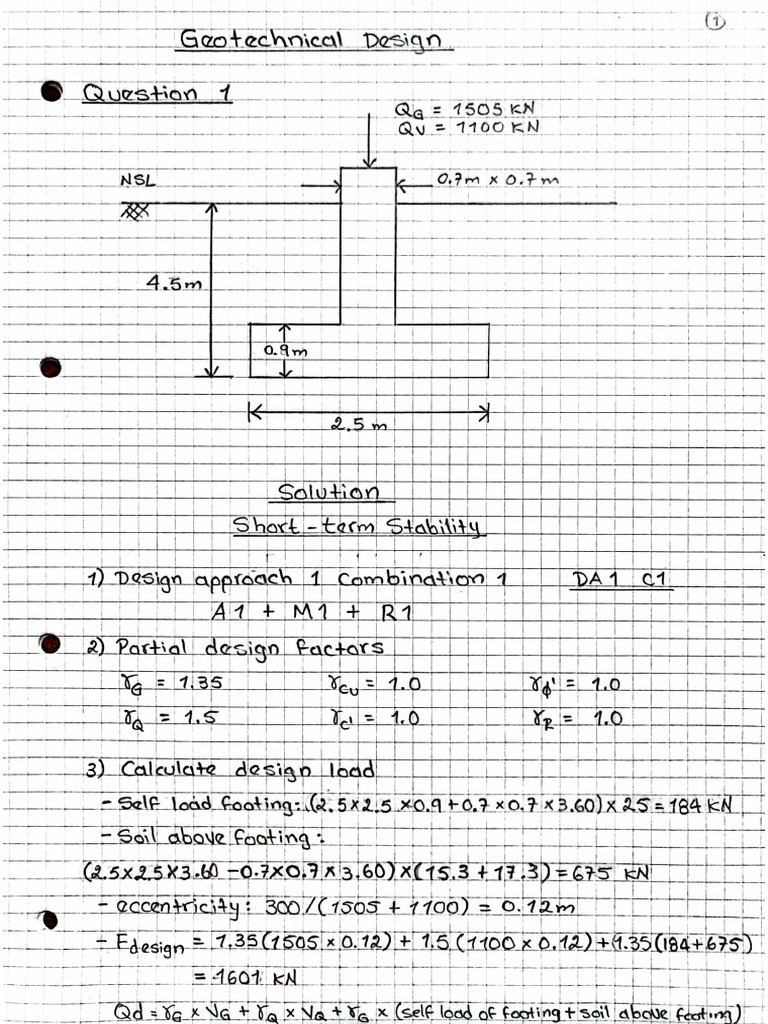 1
Geotechnical Design
Question 1
QG = 1505 KN
QV = 1100 KN
NSL
0.7m x 0.7m
4.5m
0.9m
2.5 m
Solution
Short-term Stability
1) Design approach 1 combination 1 DA1 C1
A1 + M1 + R1
2) Partial design factors
γG = 1.35 γCU = 1.0 γφ' = 1.0
γQ = 1.5 γC' = 1.0 γR = 1.0
3) Calculate design load
- Self load footing: (2.5x2.5x0.9+0.7x0.7x3.60)x25=184 KN
- Soil above footing:
(2.5x2.5x3.60-0.7x0.7x3.60)x(15.3+17.3)=675 KN
- eccentricity: 300/(1505+1100) = 0.12m
- Fdesign = 1.35(1505x0.12)+1.5(1100x0.12)+1.35(184+675)
= 1601 KN
Qd = γG x VG + γQ x VQ + γG x (self load of footing + soil above footing)